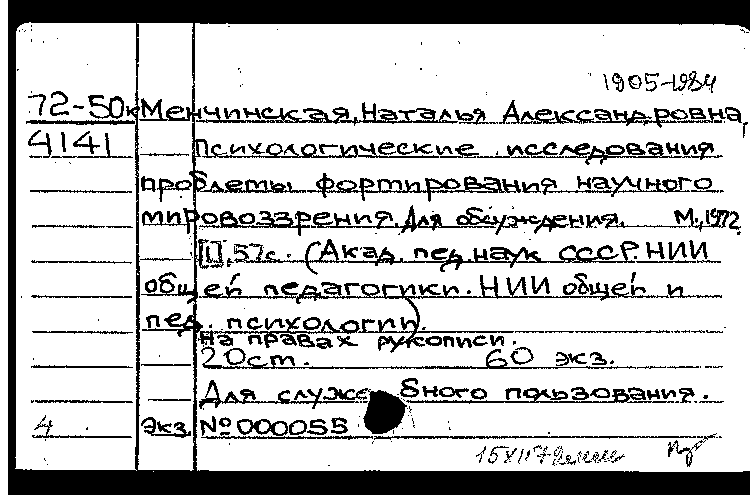 1905-1984
72-50к Менчинская, Наталья Александровна,
4141 Психологические исследования
проблемы формирования научного
мировоззрения. Для обсуждения. М., 1972.
[1], 57с. (Акад. пед. наук СССР. НИИ
общей педагогики. НИИ общей и
пед. психологии).
На правах рукописи.
20см. 60 экз.
Для служебного пользования.
4 экз. №000055